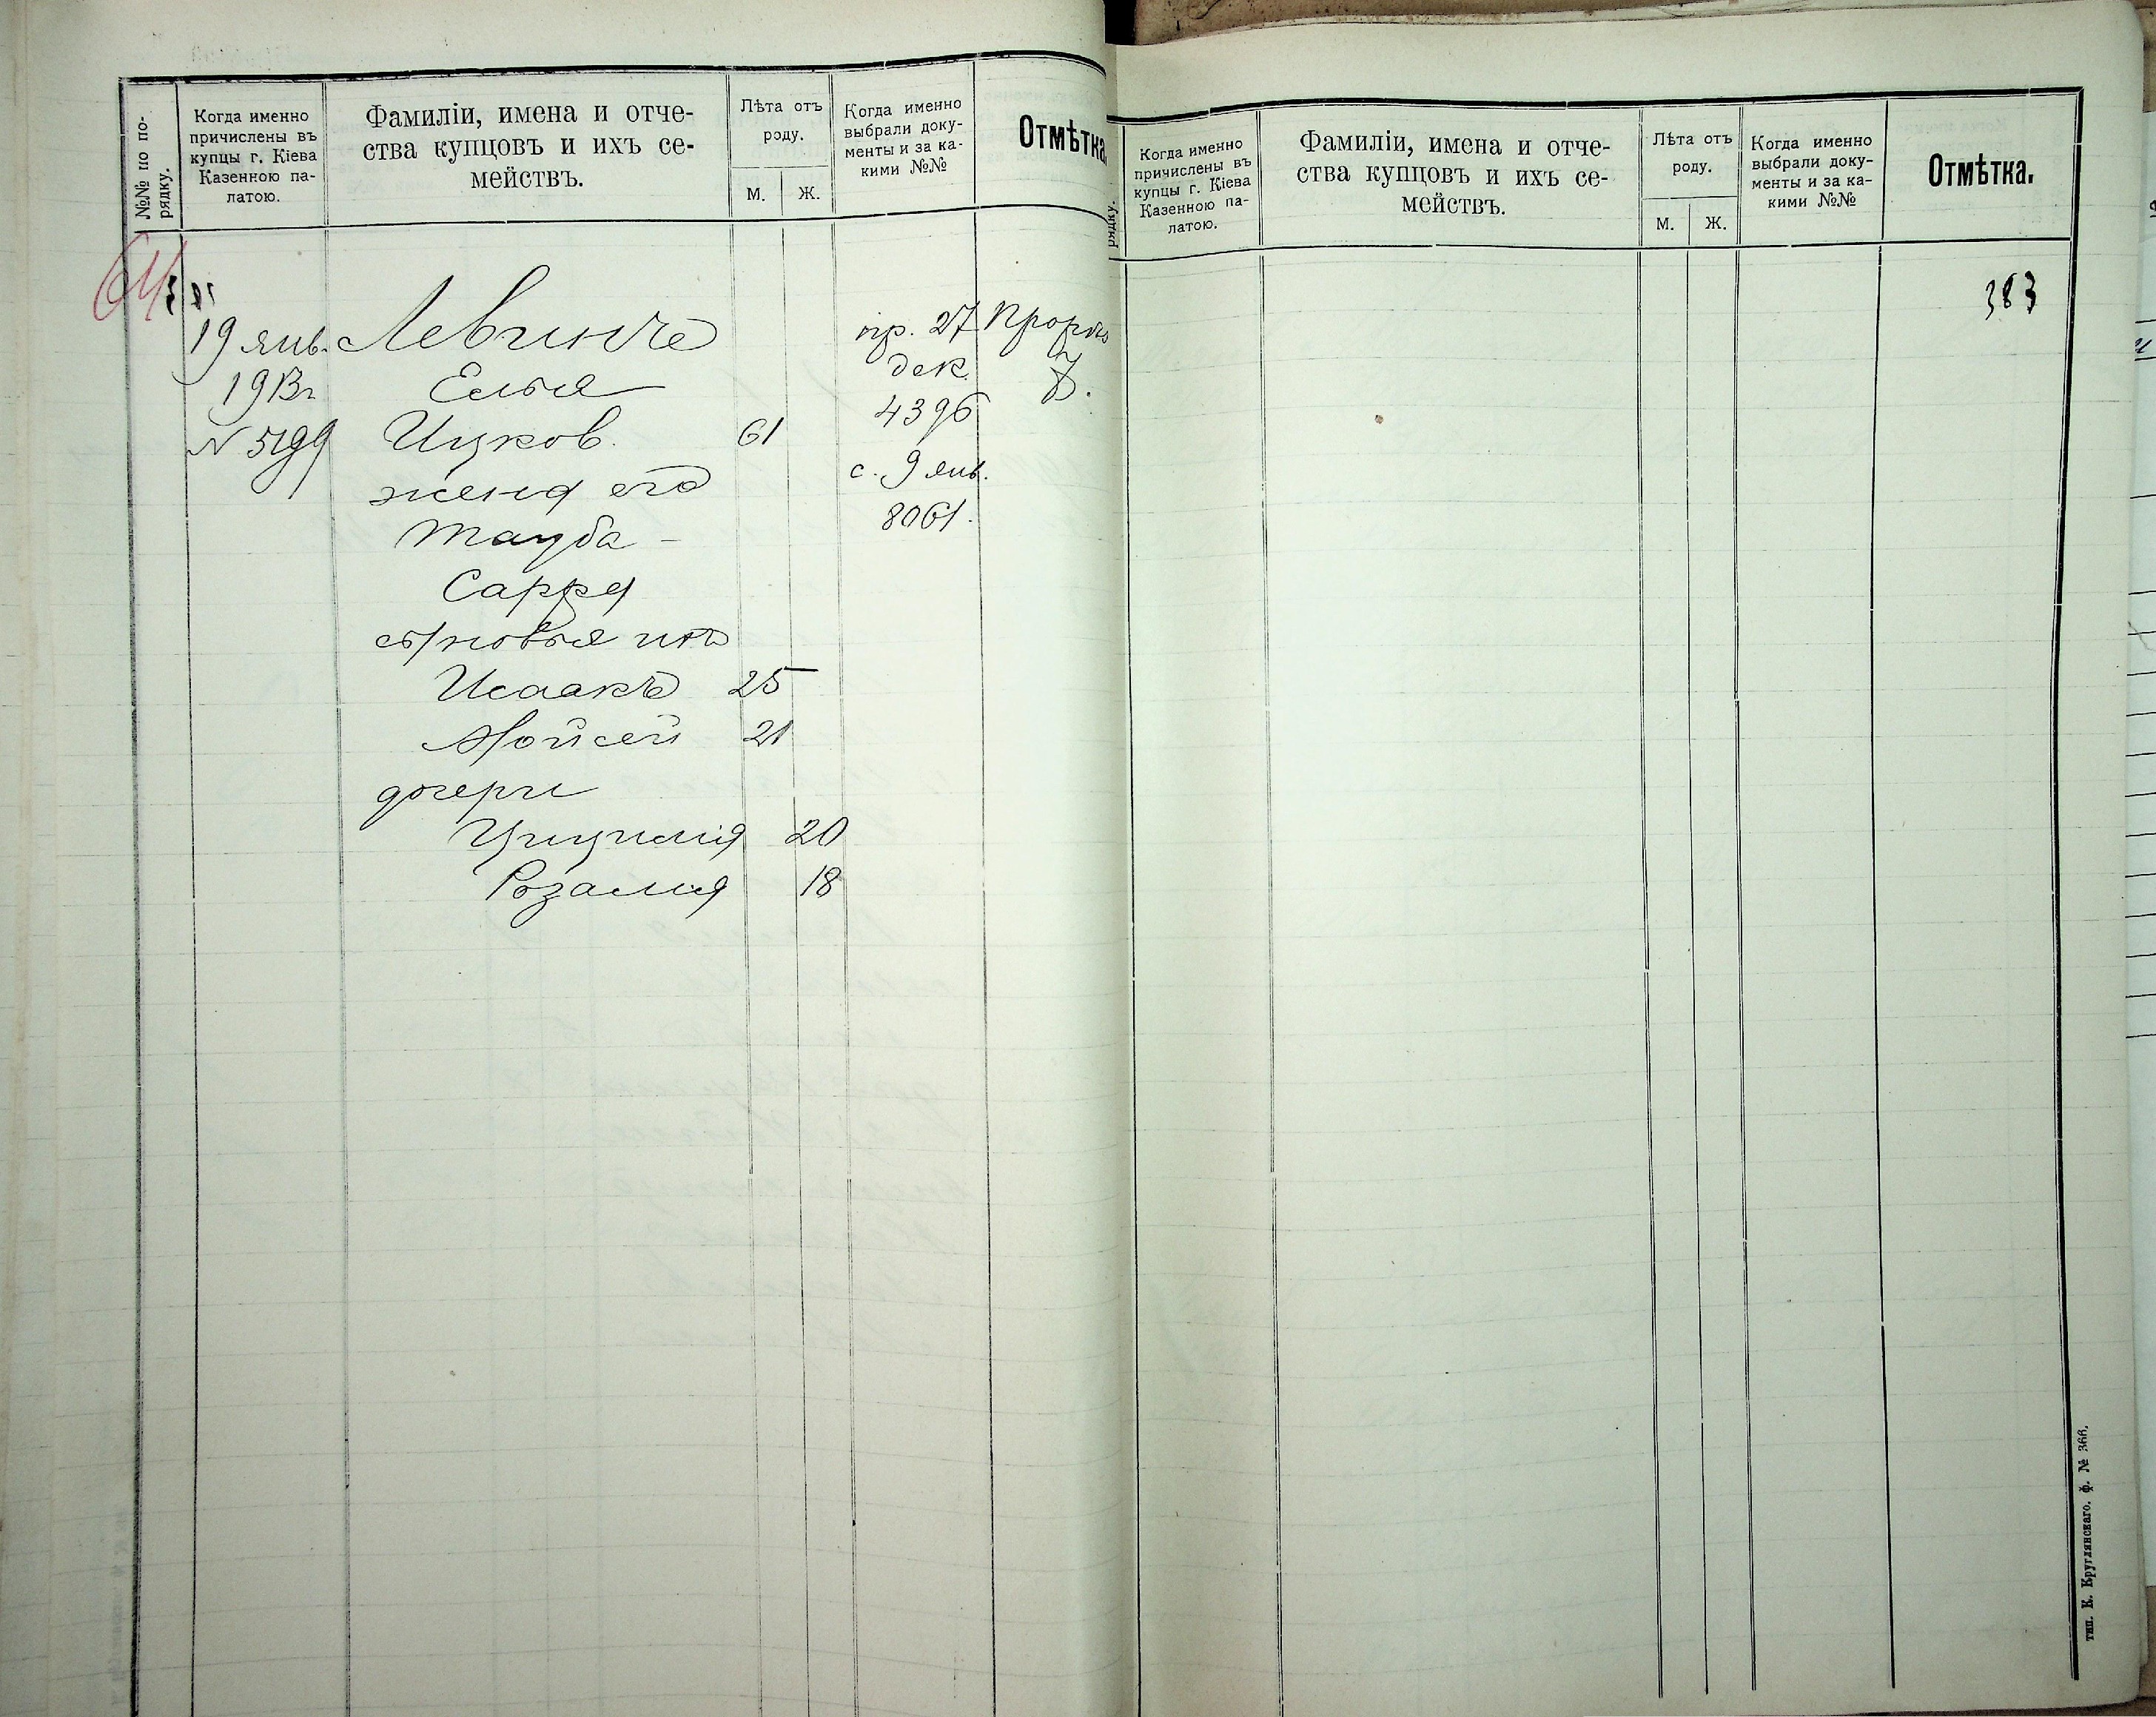 №№ по по-
рядку.
Когда именно
причислены въ
купцы г. Кіева
Казенною па-
латою.
Фамиліи, имена и отче-
ства купцовъ и ихъ се-
мействъ.
Лѣта отъ
роду.
М.
Ж.
Когда именно
выбрали доку-
менты и за ка-
кими №№
Отмѣтка.
64
19 янв.
1913г
N 5199
Левинъ
Елья
Ицков. 61
жена его
Тауба-
Сарра
сыновья ихъ
Исаакъ 25
Мойсей 21
дочери
Цицилія 20
Розалия 18
пр. 27
дек.
4396
с. 9 янв.
8061.
рядку.
Когда именно
причислены въ
купцы г. Кіева
Казенною па-
латою.
Фамиліи, имена и отче-
ства купцовъ и ихъ се-
мействъ.
Лѣта отъ
роду.
М.
Ж.
Когда именно
выбрали доку-
менты и за ка-
кими №№
Отмѣтка.
383
тип. К. Круглянскаго. ф. № 366.